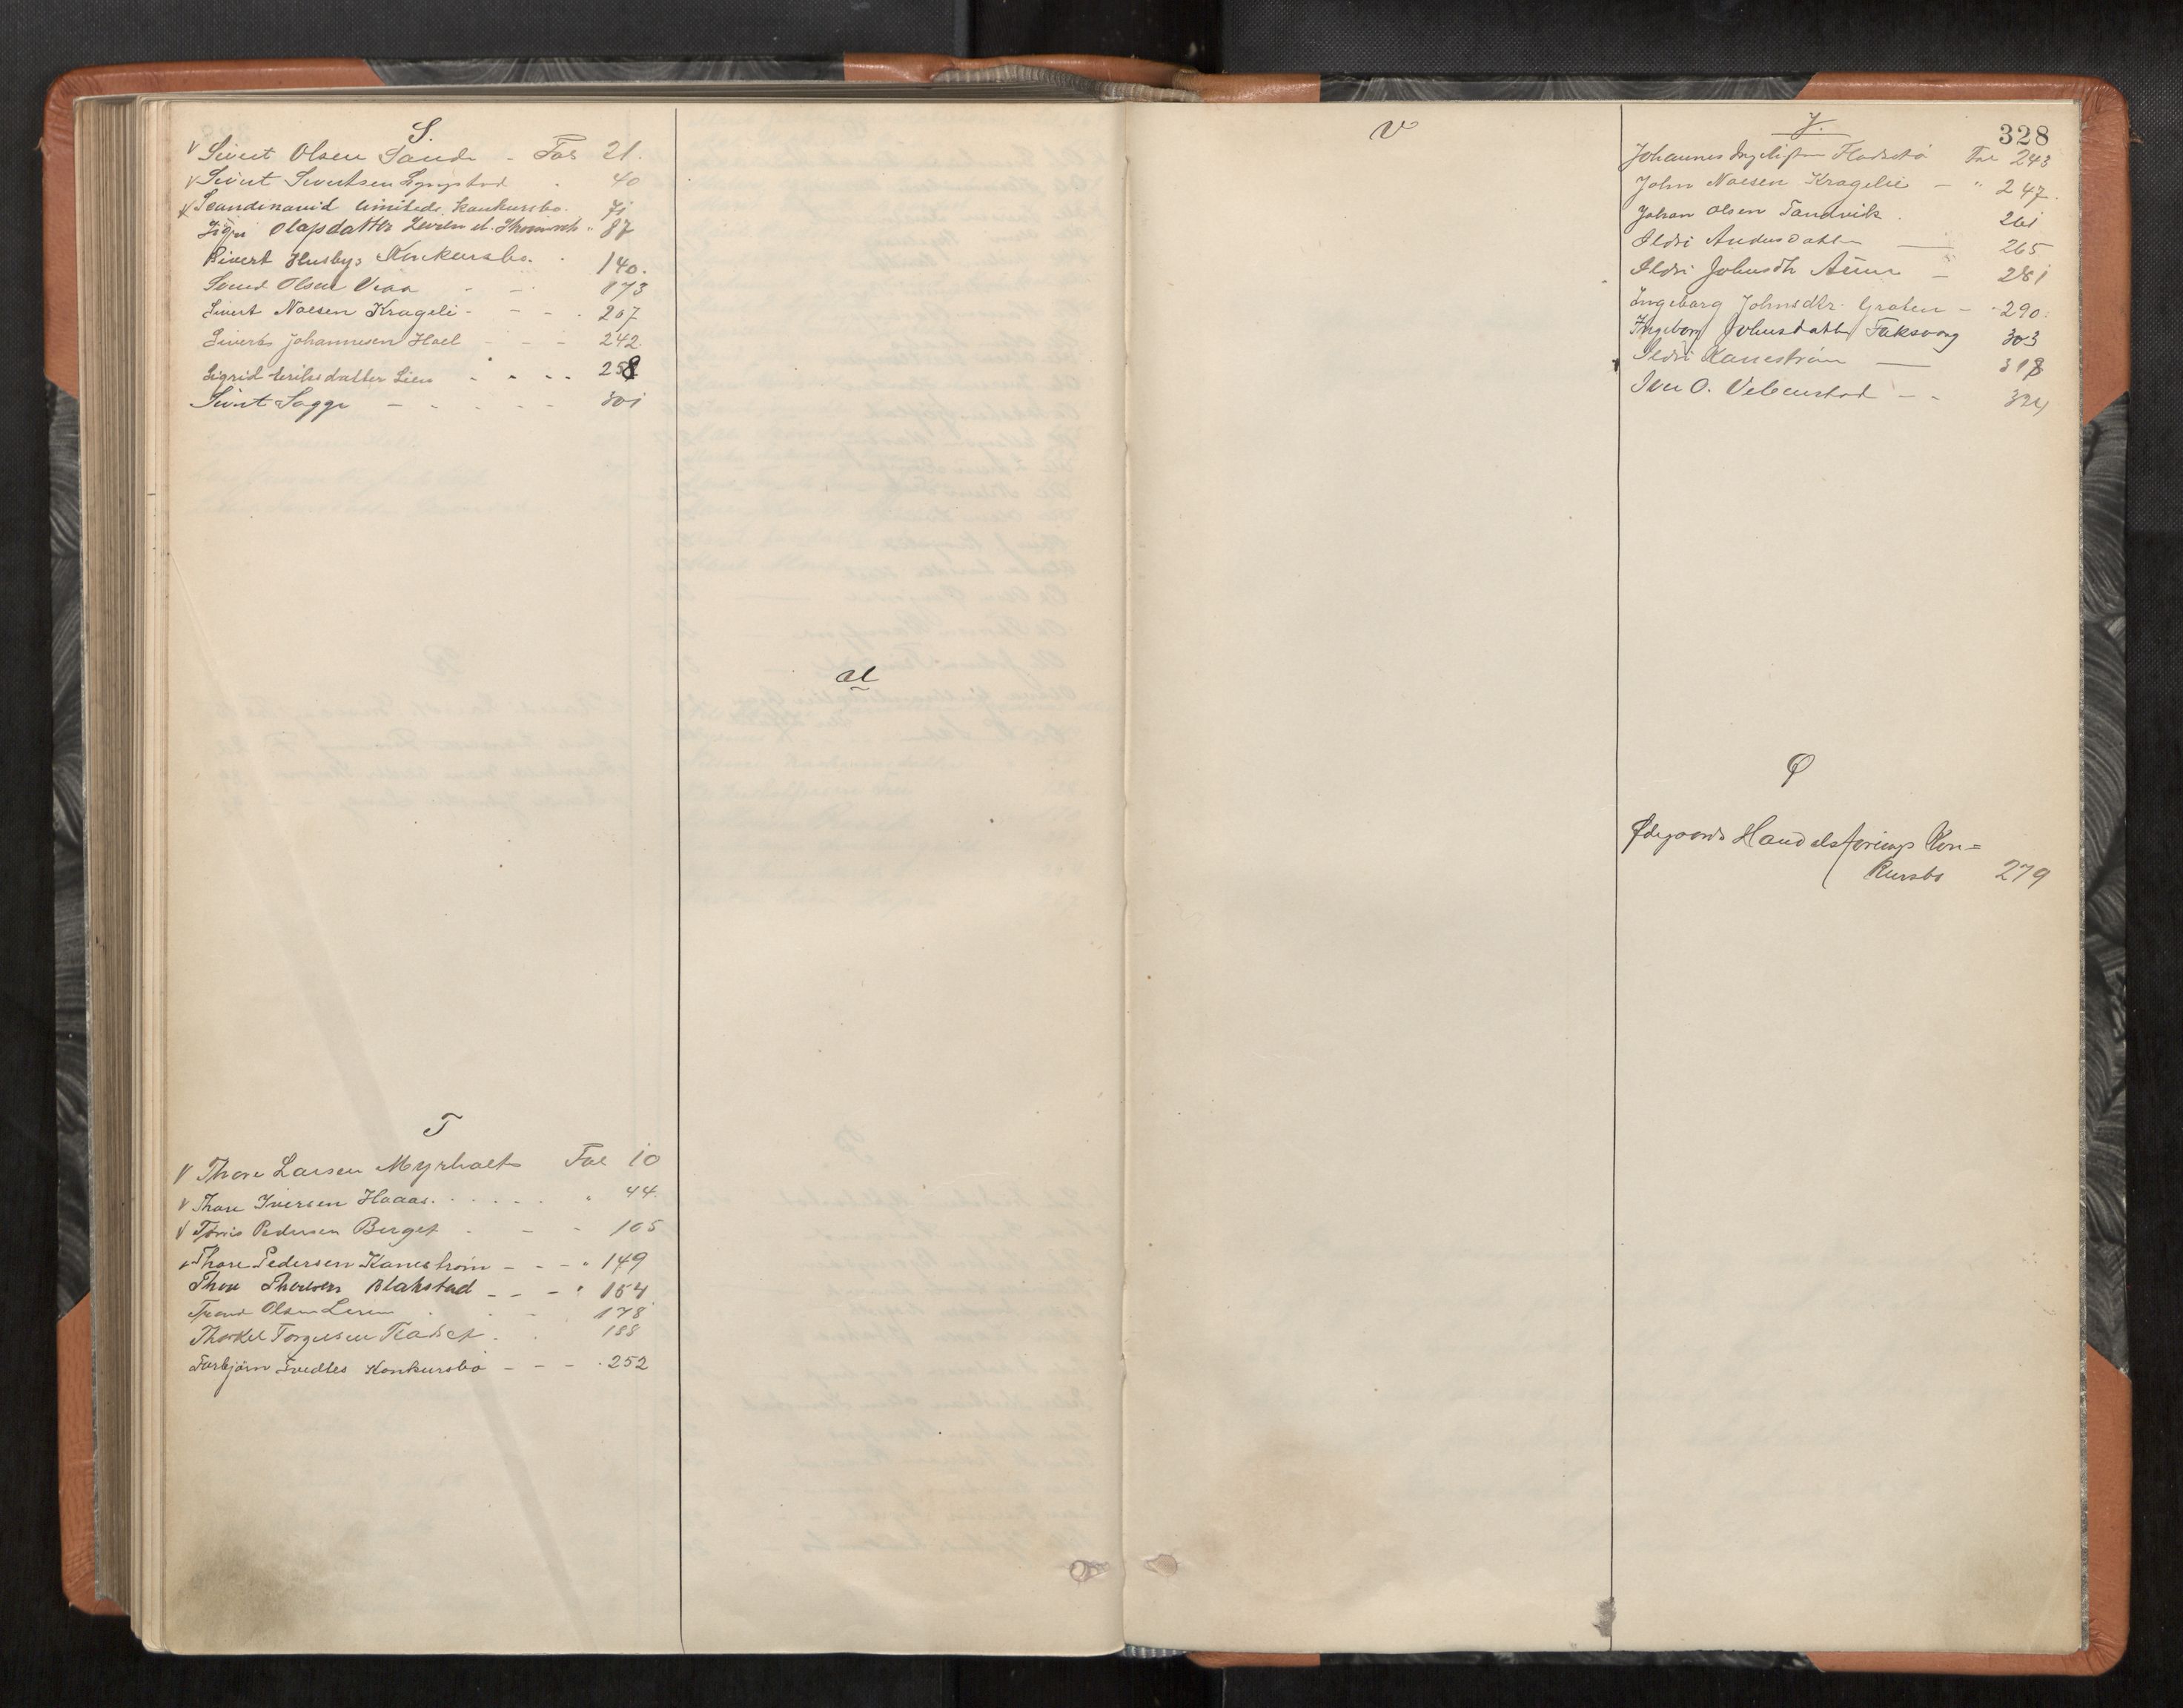 S.
V Sivert Olsen Sande - Fol 21.
V Sivert Sivertsen Lyngstad 40
V Scandinavid limiteds Konkursbo. 71
Olafsdatter 87
Sivert Husbys Konkursbo. 140.
Svend Olsen Viaa - - 173
Sivert Naesen Krageli - - - . 207
Siverts Johannesen Hoel - - - 242.
Sigrid Eriksdatter Lien - . . . 258
Sivert Sagge - - - - - 301
U
T
V Thore Larsen Myrholt Fol 10
V Thore Iversen Haaas. . . . . . " 44.
V Tønis Pedersen Berget - - - 105
V Thore Pedersen Kanestrøm - - - " 149
Thore Thoresen Blakstad - - - " 154
Trond Olsen Leren 178
Thorkel Torgersen 188
Torbjørn Tvedtes Konkursbo - - - . 252
V
328
J.
Johannes Fladsetø Fol 243
John Naesen Kragelie - " 247.
Johan Olsen Sandvik . 261
Ildri Andersdatter — 265
Ildri Johnsdtr - 281
Ingeborg Johnsdtr. Groten - . 290.
Ingeborg Johnsdatter Faksvaag 303
Ildri Kanestrøm — 318
Iver O. Vebenstad - - 324
Ø
Ødegaards Handelsforings Kon=
kursbo 279